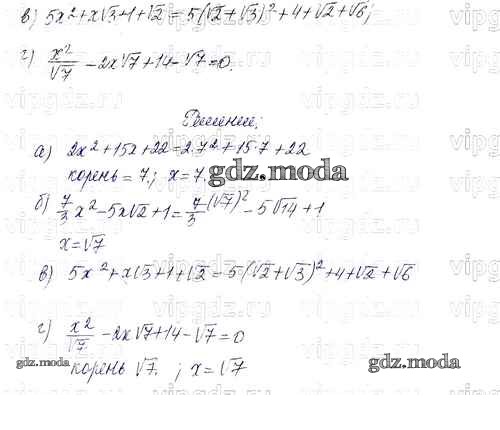 в) 5x² + x√3 + 1 + √2 = 5(√2 + √3)² + 4 + √2 + √6;
г) x²/√7 − 2x√7 + 14 − √7 = 0.
Решение:
а) 2x² + 15x + 22 = 2·7² + 15·7 + 22
корень = 7; x = 7.
gdz.moda
б) 7/3 x² − 5x√2 + 1 = 7/3 (√7)² − 5√14 + 1
x = √7
в) 5x² + x√3 + 1 + √2 = 5(√2 + √3)² + 4 + √2 + √6
г) x²/√7 − 2x√7 + 14 − √7 = 0
gdz.moda
gdz.moda
корень √7. ; x = √7